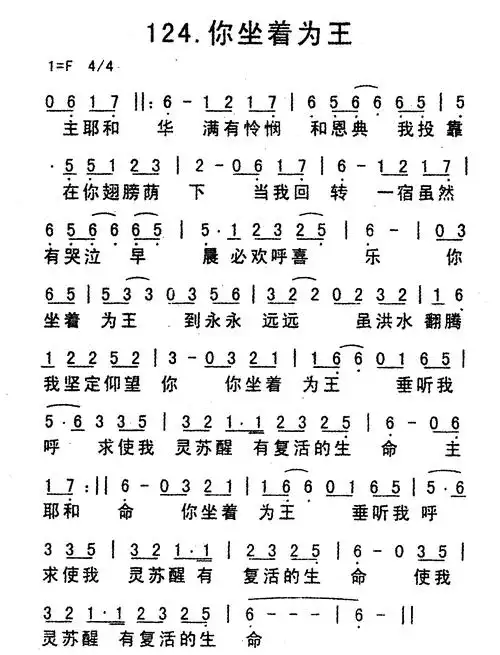 124.你坐着为王
1=F 4/4
0 6 1 7 ||: 6 - 1 2 1 7 | 6 5 6 6 6 5 | 5
主耶和 华 满有怜悯 和恩典 我投靠
· 5 5 1 2 3 | 2 - 0 6 1 7 | 6 - 1 2 1 7 |
在你翅膀荫 下 当我回转 一宿虽然
6 5 6 6 6 5 | 5 · 1 2 3 2 5 | 6 - - 0 3
有哭泣早 晨必欢呼喜 乐 你
6 5 | 5 3 3 0 3 5 6 | 3 2 2 0 2 3 2 | 1 6
坐着 为王 到永永 远远 虽洪水 翻腾
1 2 2 5 2 | 3 - 0 3 2 1 | 1 6 6 0 1 6 5 |
我坚定仰望 你 你坐着 为王 垂听我
5 · 6 3 3 5 | 3 2 1 · 1 2 3 2 5 | 6 - 0 6
呼 求使我 灵苏醒 有复活的生 命 主
1 7 :|| 6 - 0 3 2 1 | 1 6 6 0 1 6 5 | 5 · 6
耶和 命 你坐着 为王 垂听我 呼
3 3 5 | 3 2 1 · 1 | 2 3 2 5 | 6 - 0 3 5 |
求使我 灵苏醒 有 复活的生 命 使我
3 2 1 · 1 2 3 2 5 | 6 - - - | 6 - ||
灵苏醒 有复活的生 命